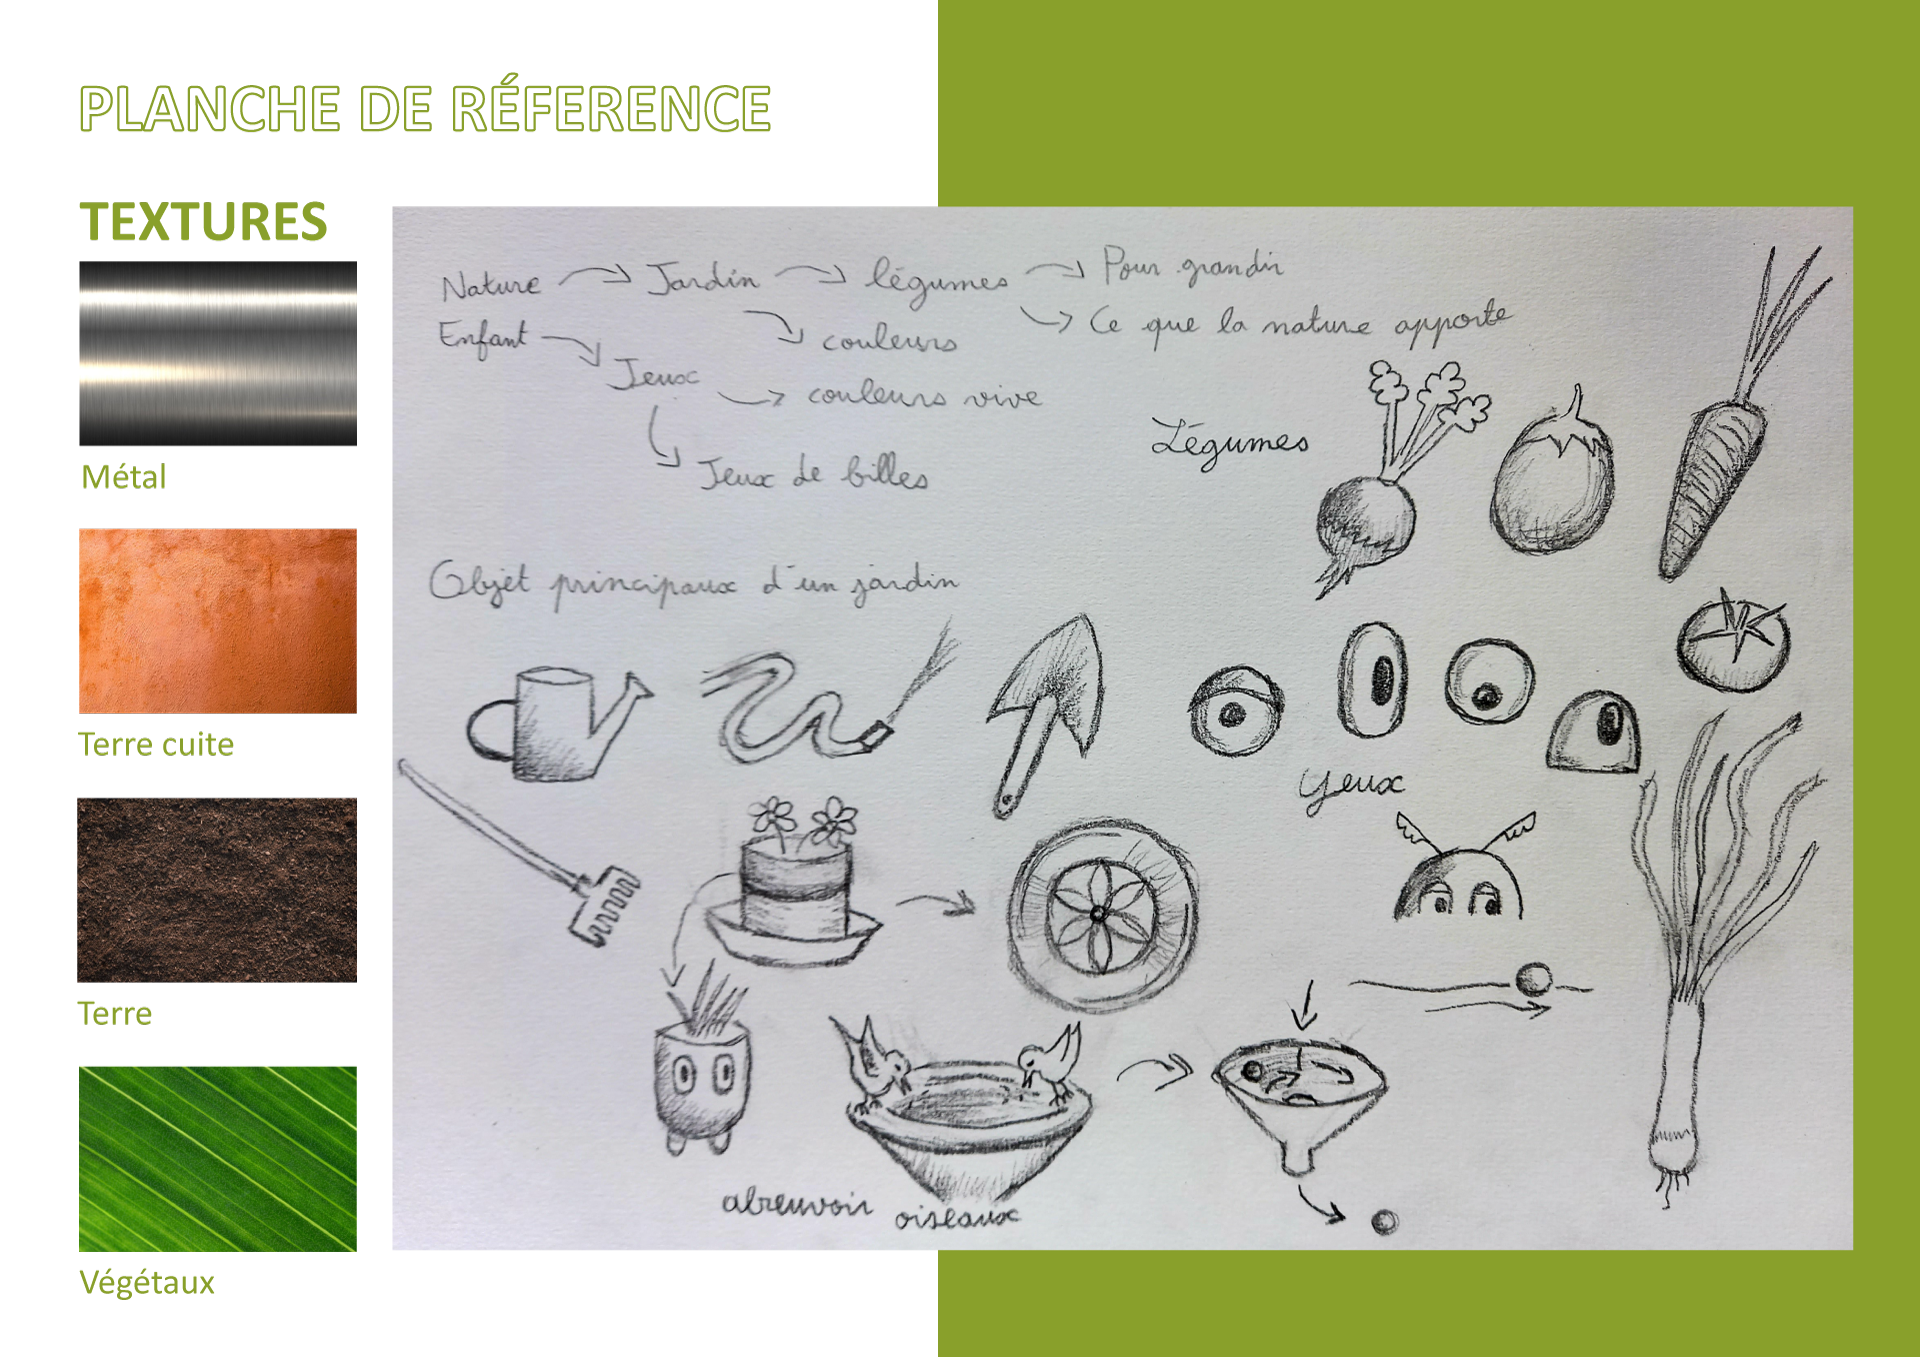 PLANCHE DE RÉFERENCE
TEXTURES
Métal
Terre cuite
Terre
Végétaux
Nature Jardin légumes Pour grandir
Ce que la nature apporte
Enfant couleurs
Jeux couleurs vive
Jeux de billes
Légumes
Objet principaux d'un jardin
Yeux
abreuvoir oiseaux